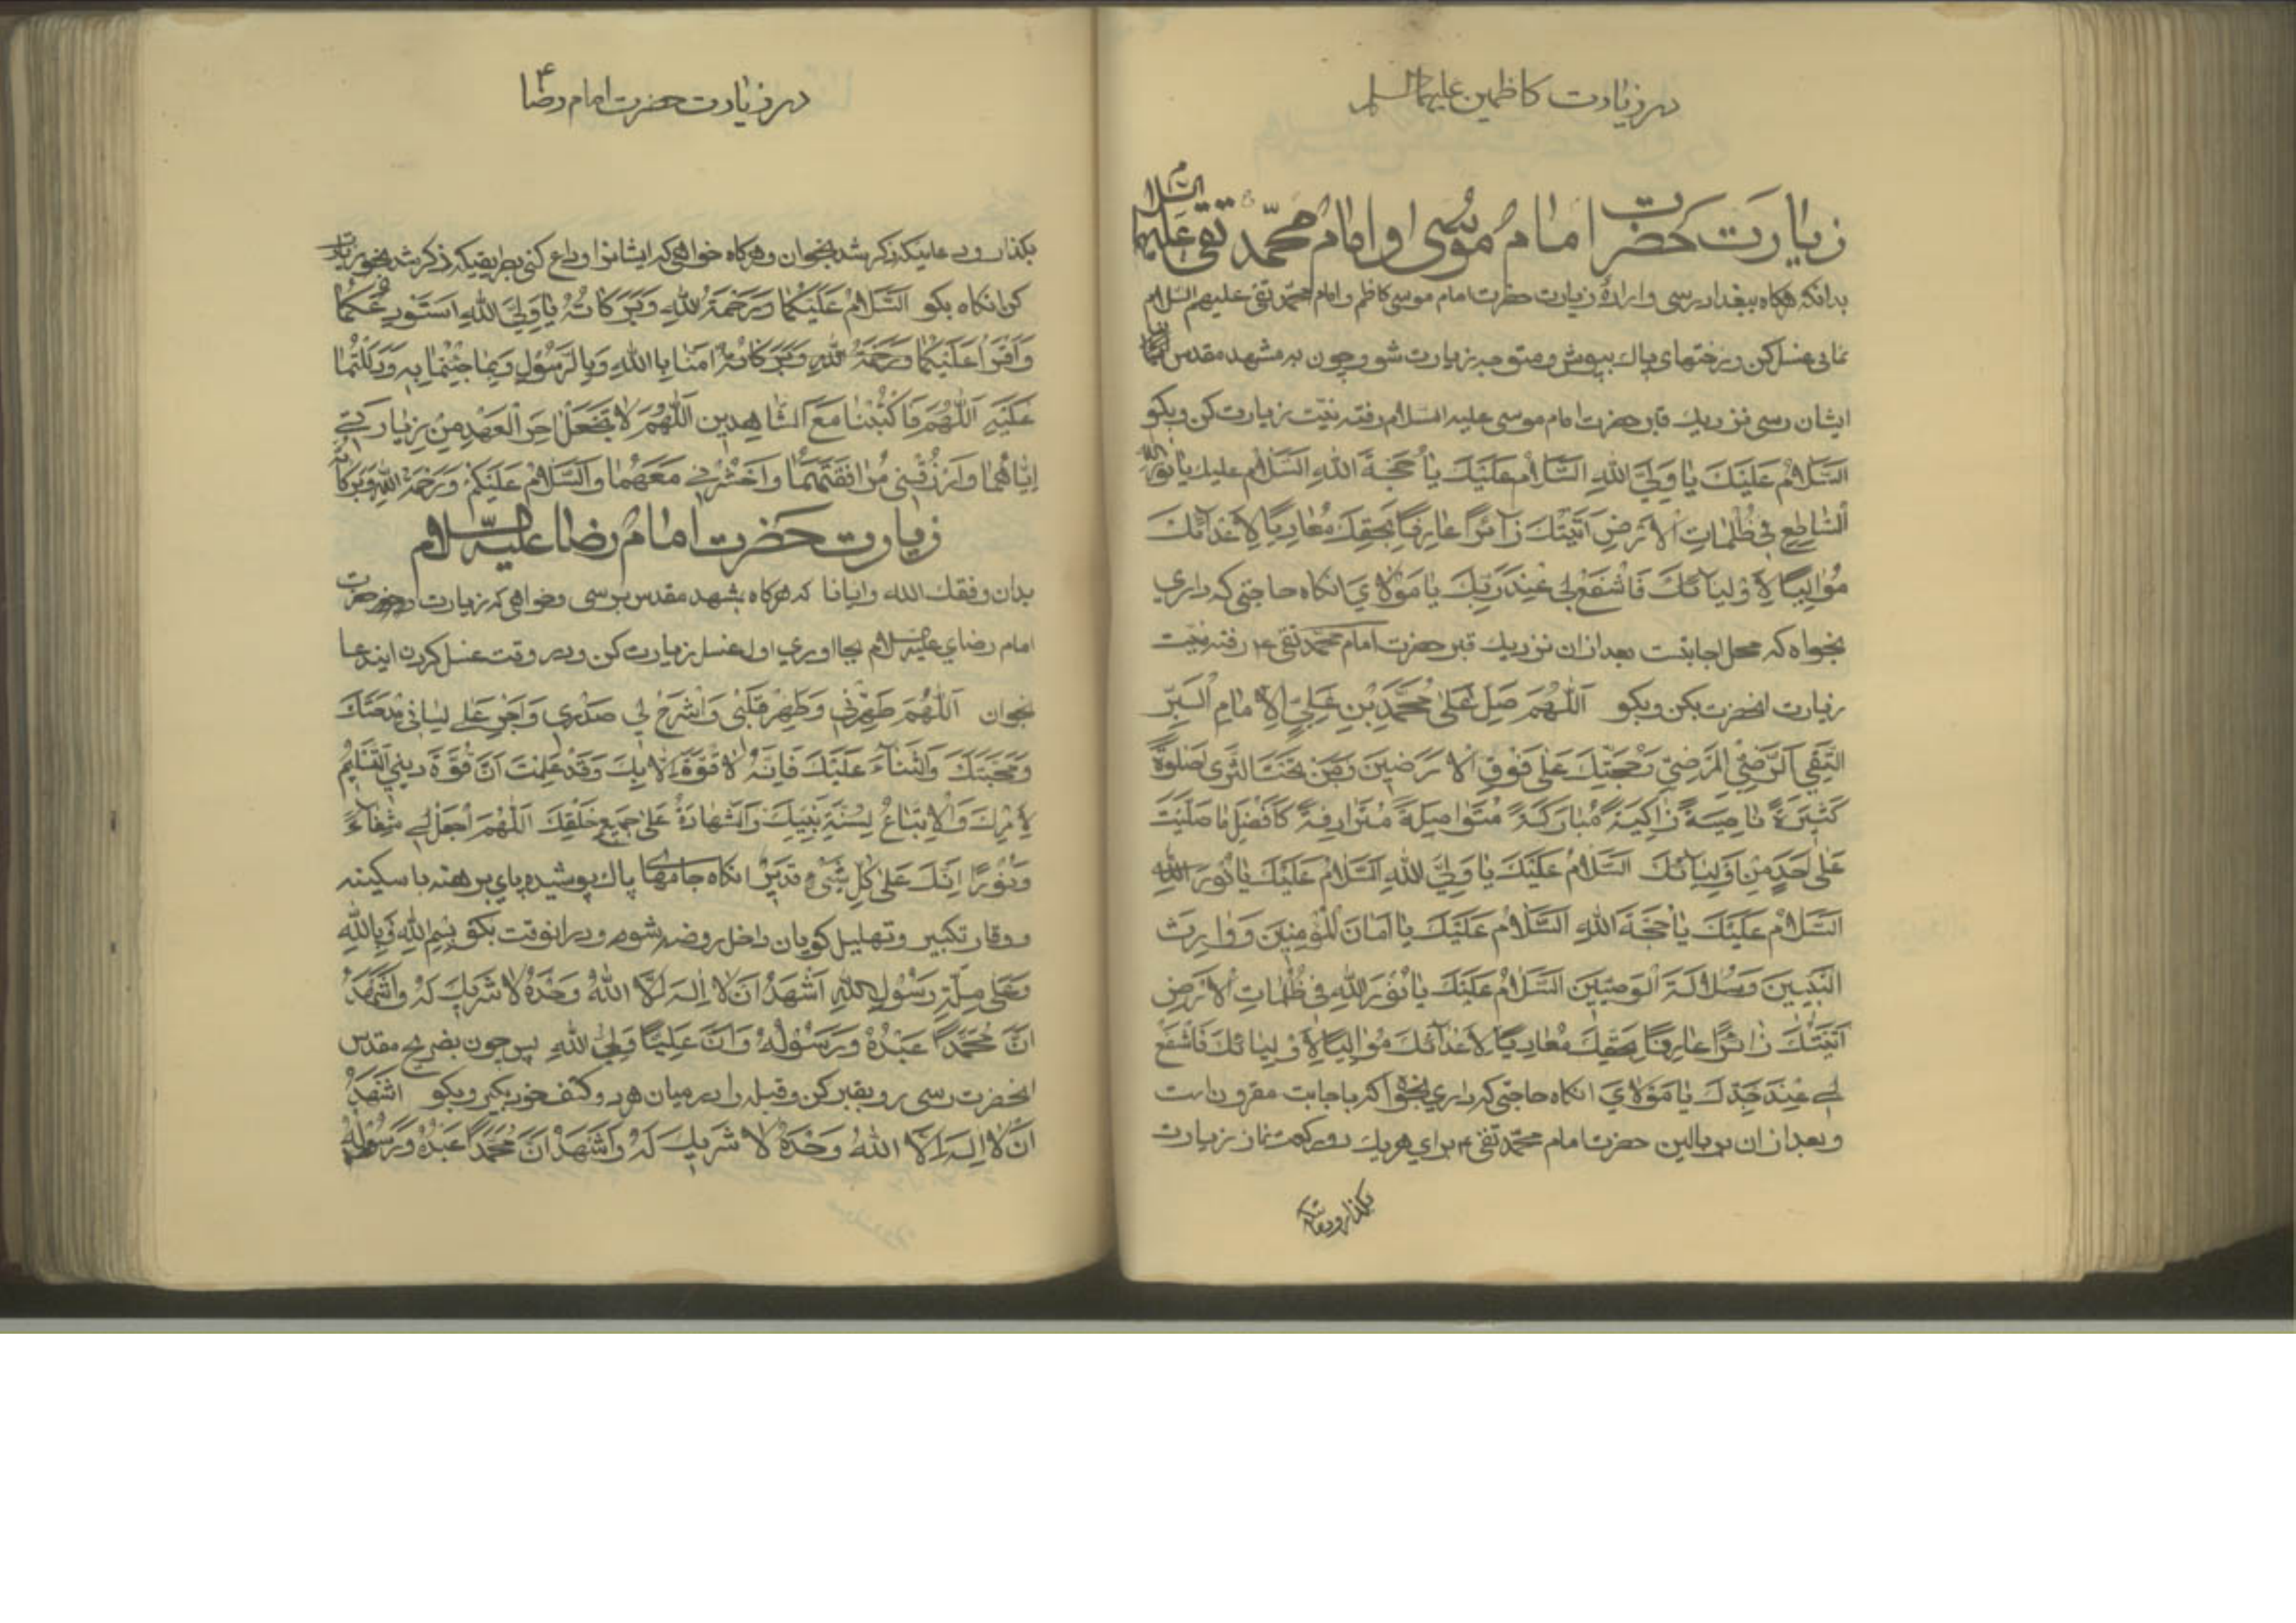 در زیارت کاظمین علیهما السلام
زیارت حضرت امام موسی و امام محمد تقی علیهما السلام
بدانکه هرکاه ببغداد رسی و ارادهٔ زیارت حضرت امام موسی کاظم و امام محمد تقی علیهم السلام
نمایی غسل کن و رختهای پاک بپوش و متوجه زیارت شو و چون به مشهد مقدس
ایشان رسی نزدیک قبر حضرت امام موسی علیه السلام رفته نیت زیارت کن و بکو
اَلسَّلامُ عَلَیْكَ یا وَلِيَّ اللهِ السَّلامُ عَلَیْكَ یا حُجَّةَ اللهِ السَّلامُ علیك یا نور الله
السّاطِعِ فی ظُلُماتِ الْاَرْضِ اَتَیْتُكَ زآئراً عارِفاً بِحَقِّكَ مُعادِیاً لِاَعْدآئكَ
مُوالِیاً لِاَوْلِیآئكَ فَاشْفَعْ لي عِنْدَ رَبِّكَ یا مَوْلايَ انکاه حاجتی که داري
بخواه که محل اجابتست بعد از ان نزدیك قبر حضرت امام محمد تقی ع رفته نیت
زیارت انحضرت بکن و بکو اَللّهُمَّ صَلِّ عَلیٰ مُحَمَّدِ بْنِ عَلِيٍّ الْاِمامِ الْبَرِّ
التَّقِي الرَّضِيِّ الْمَرْضِيِّ وَحُجَّتِكَ عَلیٰ فَوْقِ الْاَرَضِینَ وَمَنْ تَحْتَ الثَّریٰ صَلوٰةً
کَثیرَةً نامِیَةً زاکِیَةً مُبارَکَةً مُتَواصِلَةً مُتَرادِفَةً کَاَفْضَلِ ما صَلَّیْتَ
عَلیٰ اَحَدٍ مِنْ اَوْلِیآئكَ السَّلامُ عَلَیْكَ یا وَلِيَّ اللهِ اَلسَّلامُ عَلَیْكَ یا نُورَ اللهِ
اَلسَّلامُ عَلَیْكَ یا حُجَّةَ اللهِ اَلسَّلامُ عَلَیْكَ یا اِمامَ الْمُؤْمِنِینَ وَ وارِثَ
النَّبِیِّینَ وَسُلالَةَ الْوَصِیّینَ السَّلامُ عَلَیْكَ یا نُورَ اللهِ فِی ظُلُماتِ الْاَرْضِ
اَتَیْتُكَ زائراً عارِفاً بِحَقِّكَ مُعادِیاً لِاَعْدآئكَ مُوالِیاً لِاَوْلِیائكَ فَاشْفَعْ
لي عِنْدَ جَدِّكَ یا مَوْلايَ انکاه حاجتی که داري بخواه که باجابت مقرون است
و بعد از ان بر بالین حضرت امام محمد تقی ع براي هریك دو رکعت نماز زیارت
بکذار و دعائیکه
در زیارت حضرت امام رضا ع
بکذار و دعائیکه ذکر شد بخوان و هرکاه خواهی که ایشانرا وداع کنی بطریقیکه ذکر شد
کن انکاه بکو اَلسَّلامُ عَلَیْکُما وَرَحْمَةُ اللهِ وَبَرَکاتُهُ یا وَلِيَّ اللهِ اَسْتَوْدِعُکُمَا
وَاَقْرَأُ عَلَیْکُما وَرَحْمَةُ اللهِ وَبَرَکاتُهُ امَنّا بِاللهِ وَبِالرَّسُولِ وَبِما جِئْتُما بِهِ وَدَلَلْتُمٰا
عَلَیْهِ اَللّهُمَّ فَاکْتُبْنا مَعَ الشّاهِدِین اَللّهُمَّ لا تَجْعَلْ اخِرَ الْعَهْدِ مِنْ زِیارَتي
اِیّاهُما وَارْزُقْنِي مُرافَقَتَهُمٰا وَاحْشُرْني مَعَهُمٰا وَالسَّلامُ عَلَیْکُمْ وَرَحْمَةُ اللهِ وَبَرَکاتُهُ
زیارت حضرت امام رضا علیه السلام
بدان وفقك الله وایانا که هرکاه بمشهد مقدس برسی و خواهی که زیارت حضرت
امام رضاي علیه السلام بجا اوري اول غسل زیارت کن و در وقت غسل کردن ایندعا
بخوان اَللّهُمَّ طَهِّرْنِي وَطَهِّرْ قَلْبِي وَاشْرَحْ لي صَدْرِي وَاَجْرِ عَلیٰ لِسٰانِي مِدْحَتَكَ
وَمَحَبَّتَكَ وَالثَّنآءَ عَلَیْكَ فَاِنَّهُ لا قُوَّةَ اِلّا بِكَ وَقَدْ عَلِمْتُ اَنَّ قُوَّةَ دِینِي التَّسْلِیمُ
لِاَمْرِكَ وَالْاِتِّبَاعُ لِسُنَّةِ نَبِیِّكَ وَالشَّهادَةُ عَلیٰ جَمِیعِ خَلْقِكَ اَللّهُمَّ اجْعَلْهُ لي شِفٰاءً
وَنُورًا اِنَّكَ عَلیٰ کُلِّ شَيْءٍ قَدِیرٌ انکاه جامهای پاك پوشیده پاي برهنه با سکینه
و وقار تکبیر و تهلیل کویان داخل روضه شو و در انوقت بکو بِسْمِ اللهِ وَبِاللهِ
وَعَلیٰ مِلَّةِ رَسُولِ اللهِ اَشْهَدُ اَنْ لا اِلهَ اِلَّا اللهُ وَحْدَهُ لا شَرِیكَ لَهُ وَاَشْهَدُ
اَنَّ مُحَمَّداً عَبْدُهُ وَرَسُولُهُ وَاَنَّ عَلِیًّا وَلِيُّ اللهِ پس چون بضریح مقدس
انحضرت رسی رو بقبر کن و قبله را در میان هر دو کتف خود بکیر و بکو اَشْهَدُ
اَنْ لا اِلهَ اِلَّا اللهُ وَحْدَهُ لا شَرِیكَ لَهُ وَاَشْهَدُ اَنَّ مُحَمَّداً عَبْدُهُ وَرَسُولُهُ